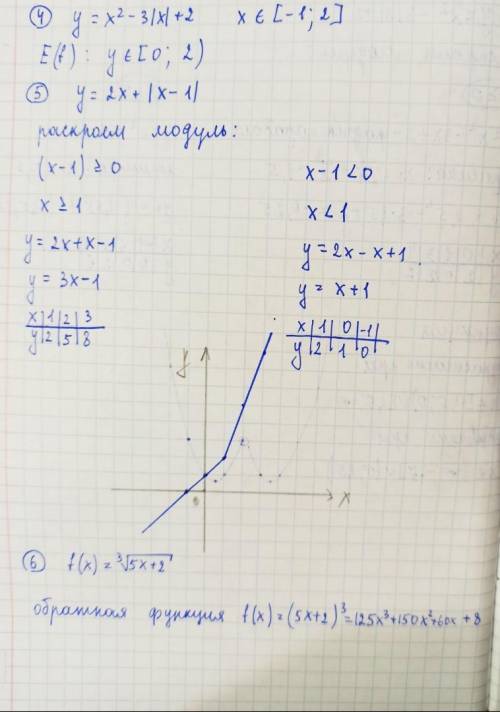 ④ y = x² - 3|x| + 2 x ∈ [-1; 2]
E(f): y ∈ [0; 2)
⑤ y = 2x + |x - 1|
раскроем модуль:
(x-1) ≥ 0
x ≥ 1
y = 2x + x - 1
y = 3x - 1
x | 1 | 2 | 3
y | 2 | 5 | 8
x - 1 < 0
x < 1
y = 2x - x + 1
y = x + 1
x | 1 | 0 | -1 |
y | 2 | 1 | 0 |
y
0
x
⑥ f(x) = ∛(5x+2)
обратная функция f(x) = (5x+2)³ = 125x³ + 150x² + 60x + 8